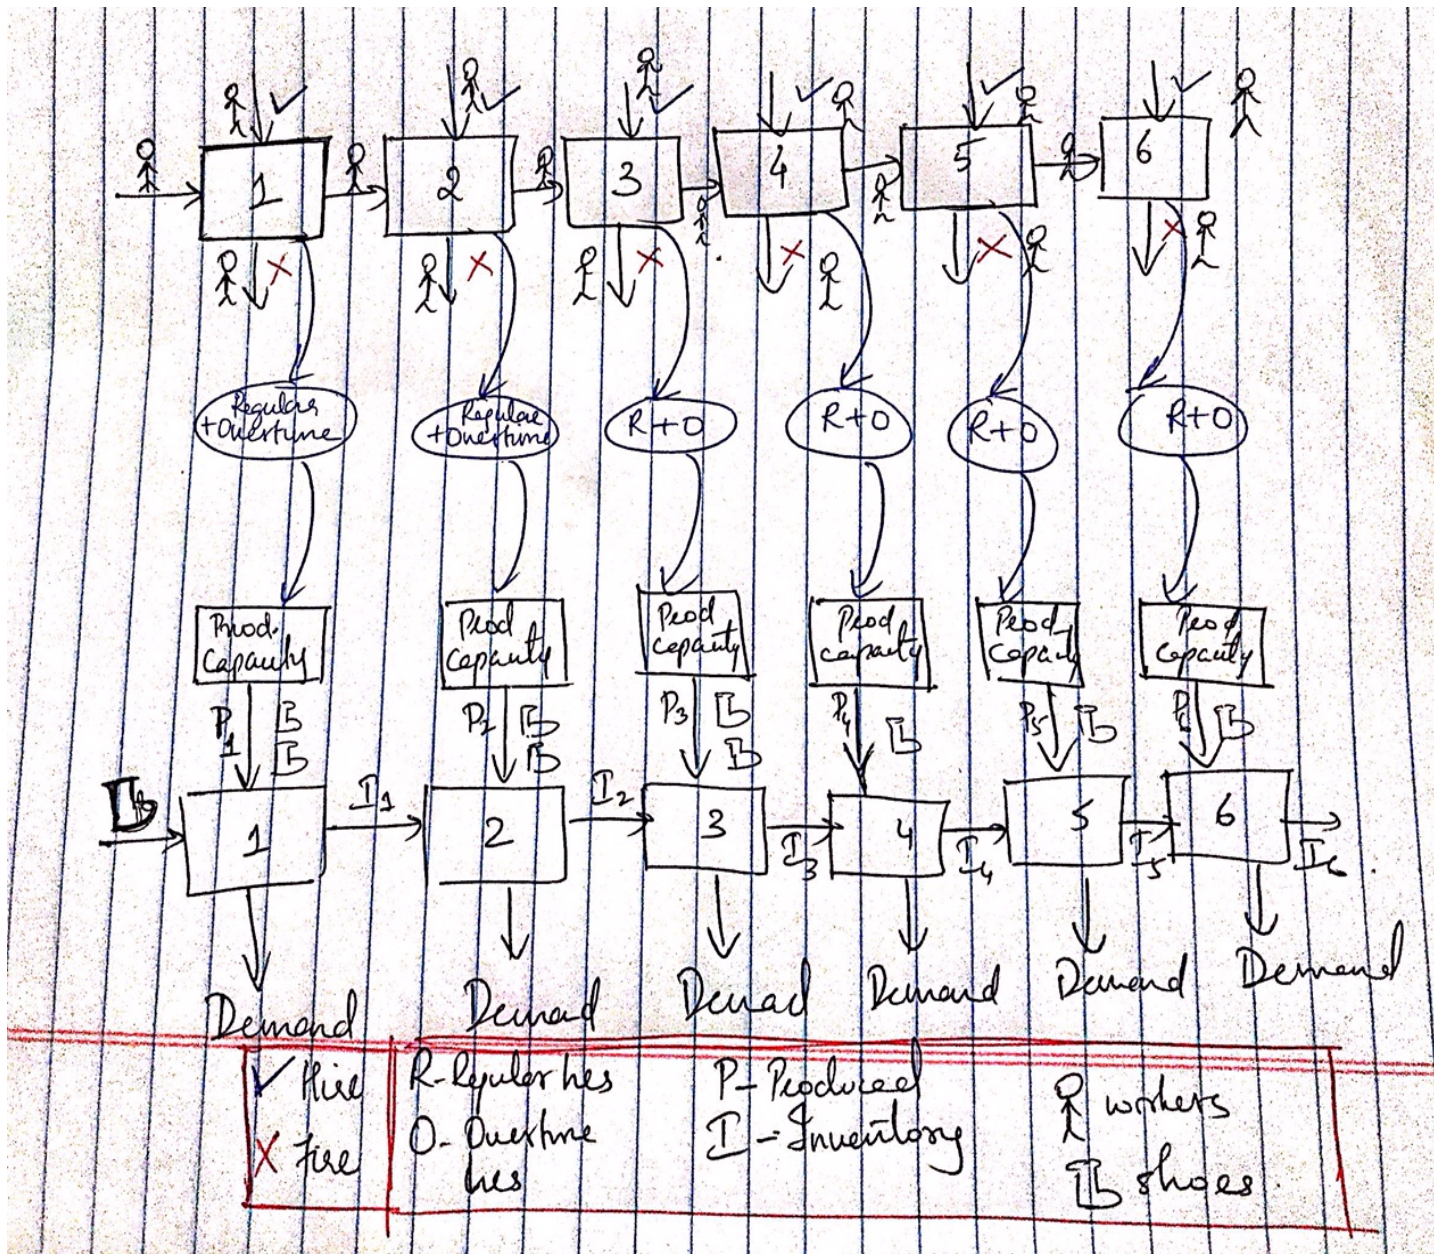 1 2 3 4 5 6
Regular
+Overtime
Regular
+Overtime
R+O
R+O
R+O
R+O
Prod.
Capacity
Prod
Capacity
Prod
capacity
Prod
capacity
Prod
capacity
Prod
capacity
P1
P2
P3
P4
P5
P6
1 I1 2 I2 3 I3 4 I4 5 I5 6 I6
Demand Demand Demand Demand Demand Demand
✓ Hire
X Fire
R-Regular hrs
O-Overtime
hrs
P-Produced
I-Inventory
workers
shoes